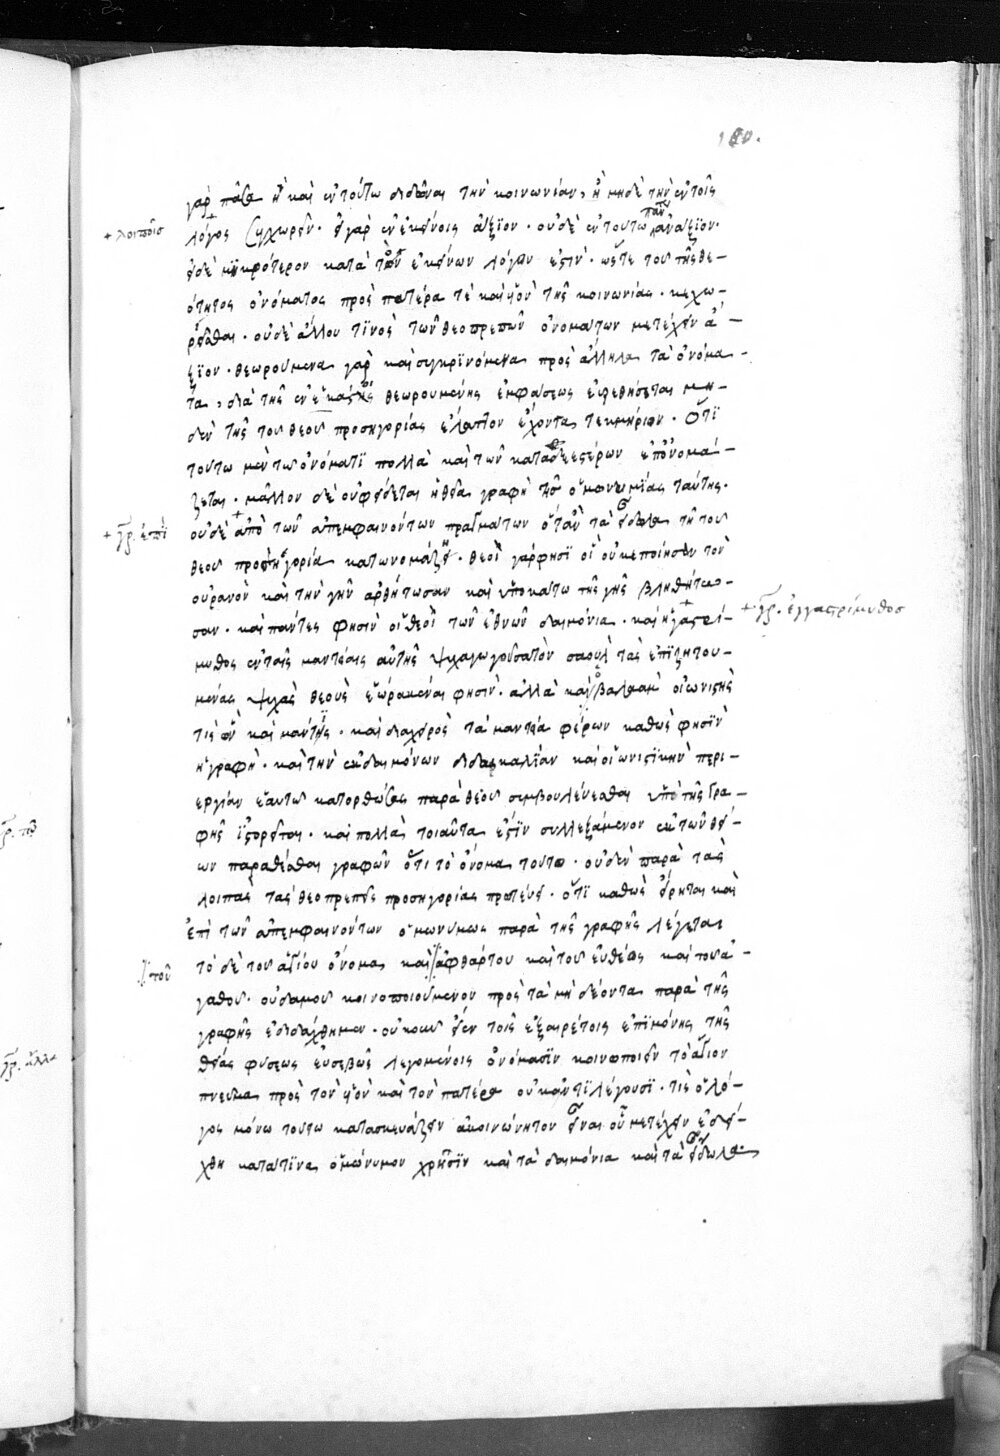 180.
γὰρ πᾶσα ἢ καὶ ἐν τούτω διδόναι τὴν κοινωνίαν, ἢ μηδὲ τὴν ἐν τοῖς
+ λοιποῖς
λόγος συγχωρεῖν. εἰ γὰρ ἐν ἐκείνοις ἄξϊον. οὐδὲ ἐν τούτω πάντ ἀνάξϊον.
εἰ δὲ μικρότερον κατὰ τὸν ἐκείνων λόγον ἐστὶν. ὥστε του τῆς θε-
ότητος ὀνόματος πρὸς πατέρα τὲ καὶ υἱὸν τῆς κοινωνίας. κεχω-
ρεῖσθαι. οὐδὲ ἄλλου τϊνὸς τῶν θεοπρεπῶν ὀνομάτων μετέχειν ἄ-
ξϊον. θεωρούμενα γὰρ καὶ συγκρϊνόμενα πρὸς ἄλληλα τὰ ὀνόμα-
τα, διὰ τῆς ἐν ἑκάστης θεωρουμένης ἐμφάσεως εὑρεθήσεται μη-
δὲν τῆς του θεου προσηγορίας ἔλαττον ἔχοντα τεκμήριον. ὅτϊ
τούτω μὲν τω ὀνόματϊ πολλὰ καὶ τῶν καταδεεστέρων ἐπὀνομά-
ζεται. μᾶλλον δὲ οὐ φείδεται ἡ θεία γραφὴ τῆ ὁμωνυμίας ταύτης.
+ γρ. ἐπὶ
οὐδὲ + ἀπὸ τῶν ἀπεμφαινόντων πραγμάτων ὅταν τὰ εἴδωλα τῆ του
θεου προσηγορία κατωνομάζη. θεοὶ γάρ φησϊ οἳ οὐκ ἐποίησαν τὸν
οὐρανὸν καὶ τὴν γῆν ἀρθήτωσαν καὶ ὑποκάτω τῆς γῆς βληθήτω-
σαν. καὶ πάντες φησὶν οἱ θεοὶ τῶν ἐθνῶν δαιμόνια. καὶ ἡ + γαστρί-
+ γρ. ἐγγαστρίμυθος
μυθος ἐν ταῖς μαντείαις αὐτῆς ψυχαγωγοῦσα τὸν σαοὺλ τὰς ἐπϊζητου-
μένας ψυχὰς θεοὺς ἑωρακέναι φησὶν. ἀλλὰ καὶ ὁ βαλαὰμ οἰωνιστὴς
τὶς ὢν καὶ μάντις. καὶ διὰ χειρὸς τὰ μαντεῖα φέρων καθὼς φησϊν
ἡ γραφὴ. καὶ τὴν ἐκ δαιμόνων διδασκαλΐαν καὶ οἰωνιστϊκὴν περι-
εργίαν ἑαυτω κατορθώσας παρὰ θεου συμβουλεύεσθαι ὑπὸ τῆς γρα-
φῆς ἱστορεῖται. καὶ πολλὰ τοιαῦτα ἐστϊν συλλεξάμενον ἐκ τῶν θεί-
ων παραθέσθαι γραφῶν ὅτι τὸ ὄνομα τουτο. οὐδὲν παρὰ τὰς
λοιπὰς τὰς θεοπρεπεῖς προσηγορίας πρωτεύει. ὅτϊ καθὼς εἴρηται καὶ
ἐπὶ τῶν ἀπεμφαινόντων ὁμωνύμως παρὰ τῆς γραφῆς λέγεται
τὸ δὲ του ἁγίου ὄνομα καὶ ἀφθάρτου καὶ του εὐθέως καὶ του ἀ-
που
γαθου. οὐδαμου κοινοποιούμενον πρὸς τὰ μὴ δέοντα παρὰ τῆς
γραφῆς ἐδιδάχθημεν. οὐκουν εἰ ἐν τοῖς ἐξαιρέτοις ἐπϊ μόνης τῆς
θείας φύσεως εὐσεβῶς λεγομένοις ὀνόμασϊν κοινωποιεῖν τὸ ἅγϊον
πνευμα πρὸς τὸν υἱὸν καὶ τὸν πατέρα οὐκ ἀντϊλέγουσϊ. τὶς ὁ λό-
γος μόνω τούτω κατασκευάζειν ἀκοινώνητον εἶναι οὗ μετέχειν ἐδεί-
χθη κατὰ τϊνα ὁμώνυμον χρῆσϊν καὶ τὰ δαιμόνια καὶ τὰ εἴδωλα.
γρ. ἀλλὰ